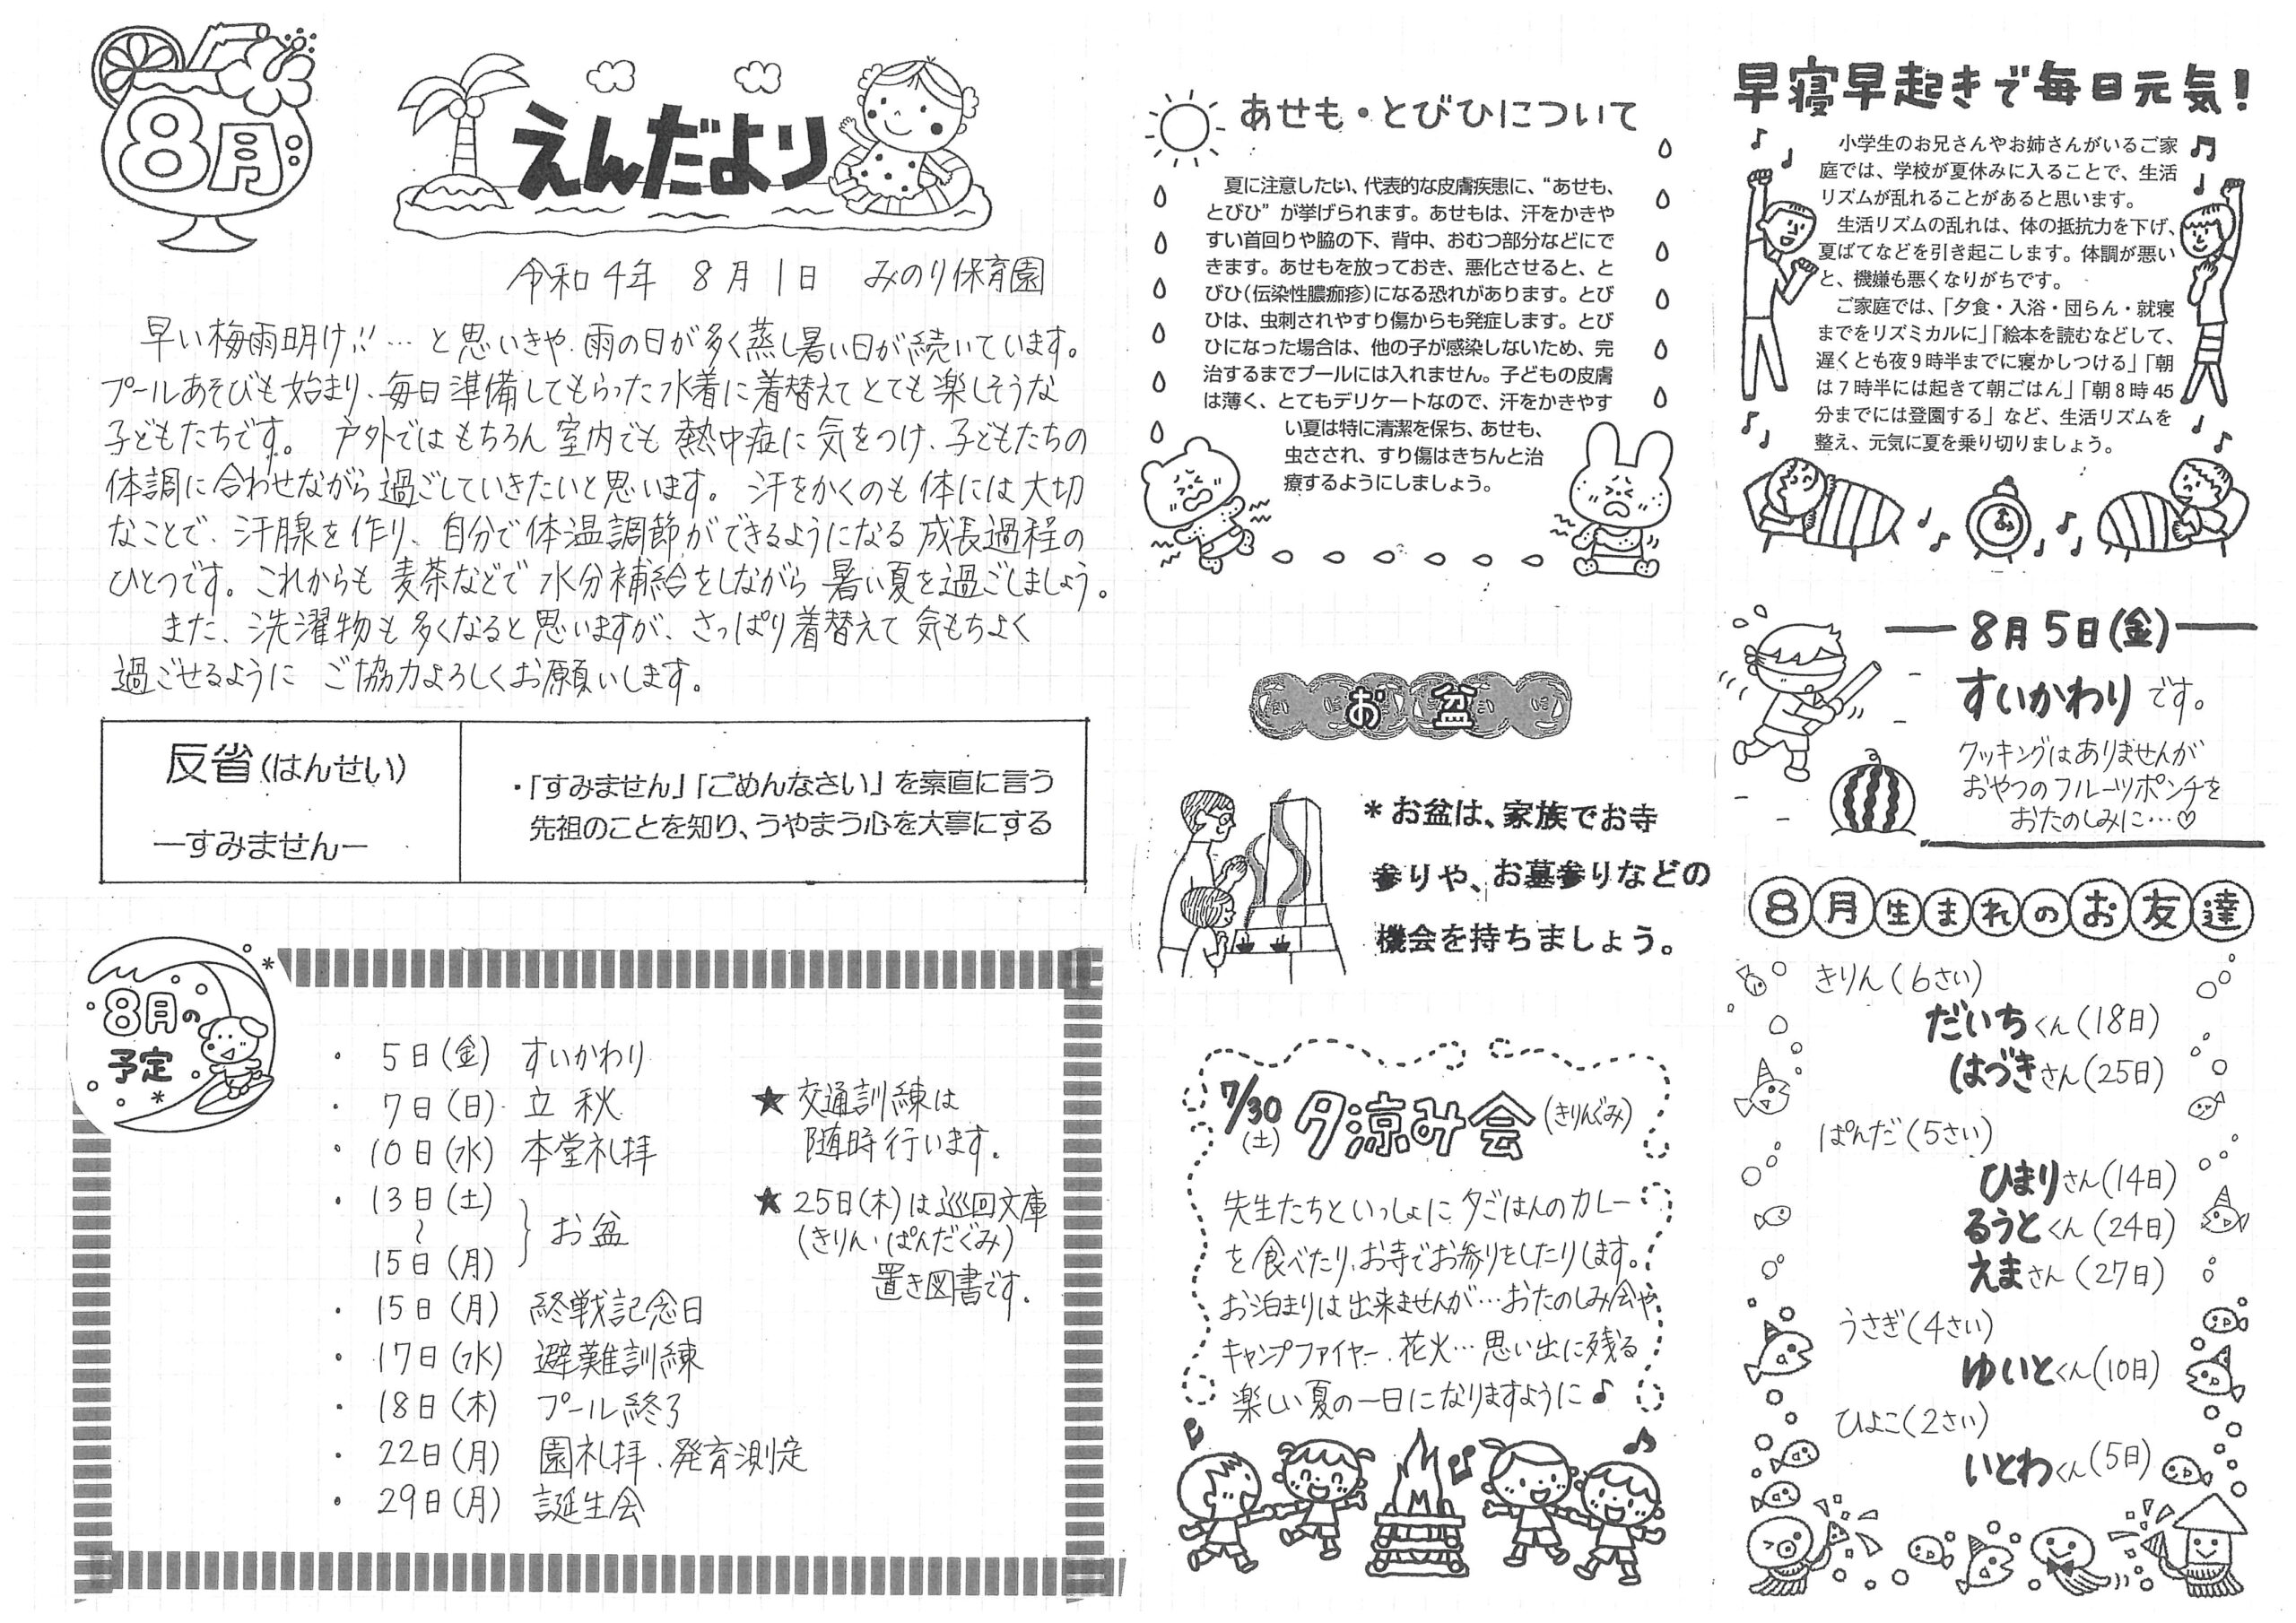 8月
えんだより
令和4年 8月1日 みのり保育園
早い梅雨明け!!…と思いきや、雨の日が多く蒸し暑い日が続いています。
プールあそびも始まり、毎日準備してもらった水着に着替えてとても楽しそうな
子どもたちです。 戸外ではもちろん室内でも熱中症に気をつけ、子どもたちの
体調に合わせながら過ごしていきたいと思います。 汗をかくのも体には大切
なことで、汗腺を作り、自分で体温調節ができるようになる成長過程の
ひとつです。これからも麦茶などで水分補給をしながら暑い夏を過ごしましょう。
また、洗濯物も多くなると思いますが、さっぱり着替えて気もちよく
過ごせるように ご協力よろしくお願いします。
反省(はんせい)
―すみません―
・「すみません」「ごめんなさい」を素直に言う
先祖のことを知り、うやまう心を大事にする
8月の
予定
・ 5日(金) すいかわり
・ 7日(日) 立秋
・ 10日(水) 本堂礼拝
・ 13日(土)
〜 } お盆
15日(月)
・ 15日(月) 終戦記念日
・ 17日(水) 避難訓練
・ 18日(木) プール終了
・ 22日(月) 園礼拝、発育測定
・ 29日(月) 誕生会
★ 交通訓練は
随時行います。
★ 25日(木)は巡回文庫
(きりん・ぱんだぐみ)
置き図書です。
あせも・とびひについて
夏に注意したい、代表的な皮膚疾患に、“あせも、
とびひ”が挙げられます。あせもは、汗をかきや
すい首回りや脇の下、背中、おむつ部分などにで
きます。あせもを放っておき、悪化させると、と
びひ(伝染性膿痂疹)になる恐れがあります。とび
ひは、虫刺されやすり傷からも発症します。とび
ひになった場合は、他の子が感染しないため、完
治するまでプールには入れません。子どもの皮膚
は薄く、とてもデリケートなので、汗をかきやす
い夏は特に清潔を保ち、あせも、
虫さされ、すり傷はきちんと治
療するようにしましょう。
お盆
＊お盆は、家族でお寺
参りや、お墓参りなどの
機会を持ちましょう。
7/30
(土)
夕涼み会(きりんぐみ)
先生たちといっしょに夕ごはんのカレー
を食べたり、お寺でお参りをしたりします。
お泊まりは出来ませんが…おたのしみ会や
キャンプファイヤー、花火…思い出に残る
楽しい夏の一日になりますように♪
早寝早起きで毎日元気!
小学生のお兄さんやお姉さんがいるご家
庭では、学校が夏休みに入ることで、生活
リズムが乱れることがあると思います。
生活リズムの乱れは、体の抵抗力を下げ、
夏ばてなどを引き起こします。体調が悪い
と、機嫌も悪くなりがちです。
ご家庭では、「夕食・入浴・団らん・就寝
までをリズミカルに」「絵本を読むなどして、
遅くとも夜9時半までに寝かしつける」「朝
は7時半には起きて朝ごはん」「朝8時45
分までには登園する」など、生活リズムを
整え、元気に夏を乗り切りましょう。
8月5日(金)
すいかわりです。
クッキングはありませんが
おやつのフルーツポンチを
おたのしみに…♡
8月生まれのお友達
きりん(6さい)
だいちくん(18日)
はづきさん(25日)
ぱんだ(5さい)
ひまりさん(14日)
るうとくん(24日)
えまさん(27日)
うさぎ(4さい)
ゆいとくん(10日)
ひよこ(2さい)
いとわくん(5日)